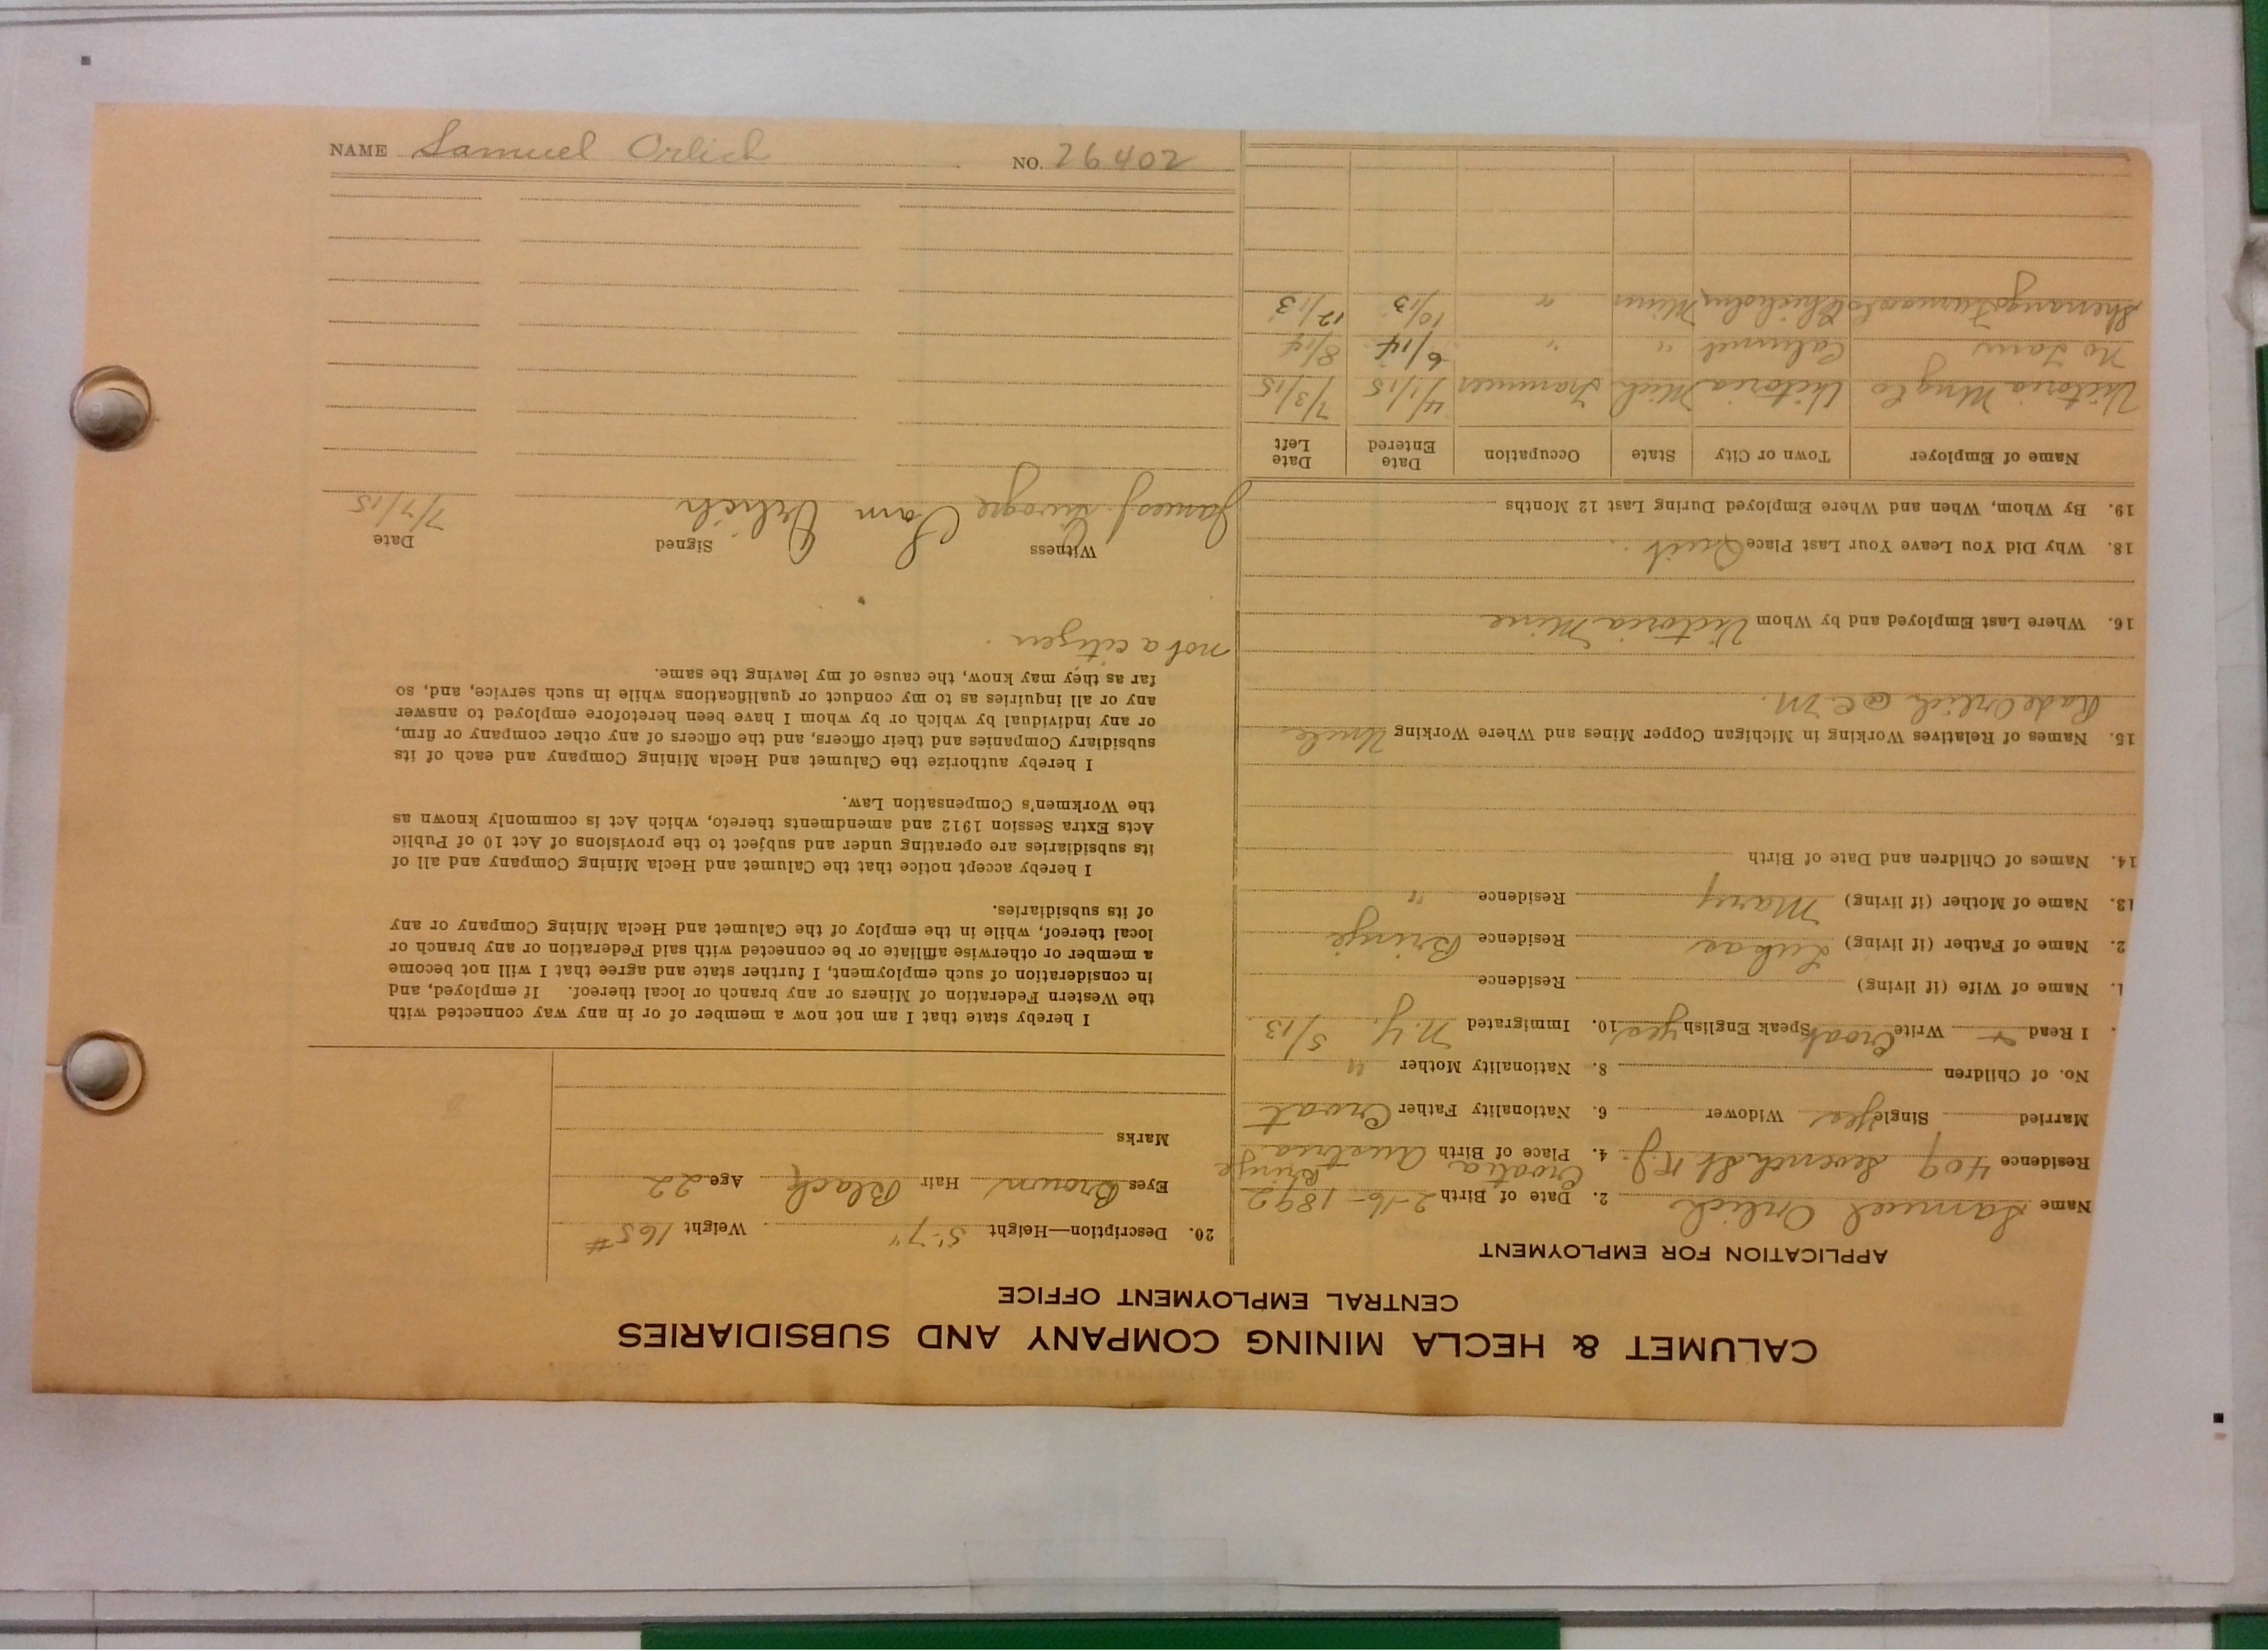 CALUMET & HECLA MINING COMPANY AND SUBSIDIARIES
CENTRAL EMPLOYMENT OFFICE
APPLICATION FOR EMPLOYMENT
Name Samuel Orlich 2. Date of Birth 2-16-1892
Residence 409 Seventh St R.J. 4. Place of Birth Croatia Austria Brinje
Married Single Yes Widower 6. Nationality Father Croat
No. of Children 8. Nationality Mother "
I Read + Write Croat Speak English yes 10. Immigrated N.Y. 5/13
1. Name of Wife (if living) Residence
2. Name of Father (if living) Residence Brinje
13. Name of Mother (if living) Mary Residence "
14. Names of Children and Date of Birth
15. Names of Relatives Working in Michigan Copper Mines and Where Working Uncle
Rade Orlich @ C M.
16. Where Last Employed and by Whom Victoria Mine
18. Why Did You Leave Your Last Place Quit
19. By Whom, When and Where Employed During Last 12 Months
Name of Employer Town or City State Occupation Date Entered Date Left
Victoria Mng Co Victoria Mich Trammer 4/1/15 7/3/15
No Tam Calumet " " 6/14 8/14
Shenango Furnace Co Chisholm Minn " 10/13 12/13
20. Description—Height 5'-7" Weight 165#
Eyes Brown Hair Black Age 22
Marks
I hereby state that I am not now a member of or in any way connected with
the Western Federation of Miners or any branch or local thereof. If employed, and
in consideration of such employment, I further state and agree that I will not become
a member or otherwise affiliate or be connected with said Federation or any branch or
local thereof, while in the employ of the Calumet and Hecla Mining Company or any
of its subsidiaries.
I hereby accept notice that the Calumet and Hecla Mining Company and all of
its subsidiaries are operating under and subject to the provisions of Act 10 of Public
Acts Extra Session 1912 and amendments thereto, which Act is commonly known as
the Workmen's Compensation Law.
I hereby authorize the Calumet and Hecla Mining Company and each of its
subsidiary Companies and their officers, and the officers of any other company or firm,
or any individual by which or by whom I have been heretofore employed to answer
any or all inquiries as to my conduct or qualifications while in such service, and, so
far as they may know, the cause of my leaving the same.
not a citizen.
Witness Signed Date
James J. Sam Orlich 7/7/15
NAME Samuel Orlich NO. 26402